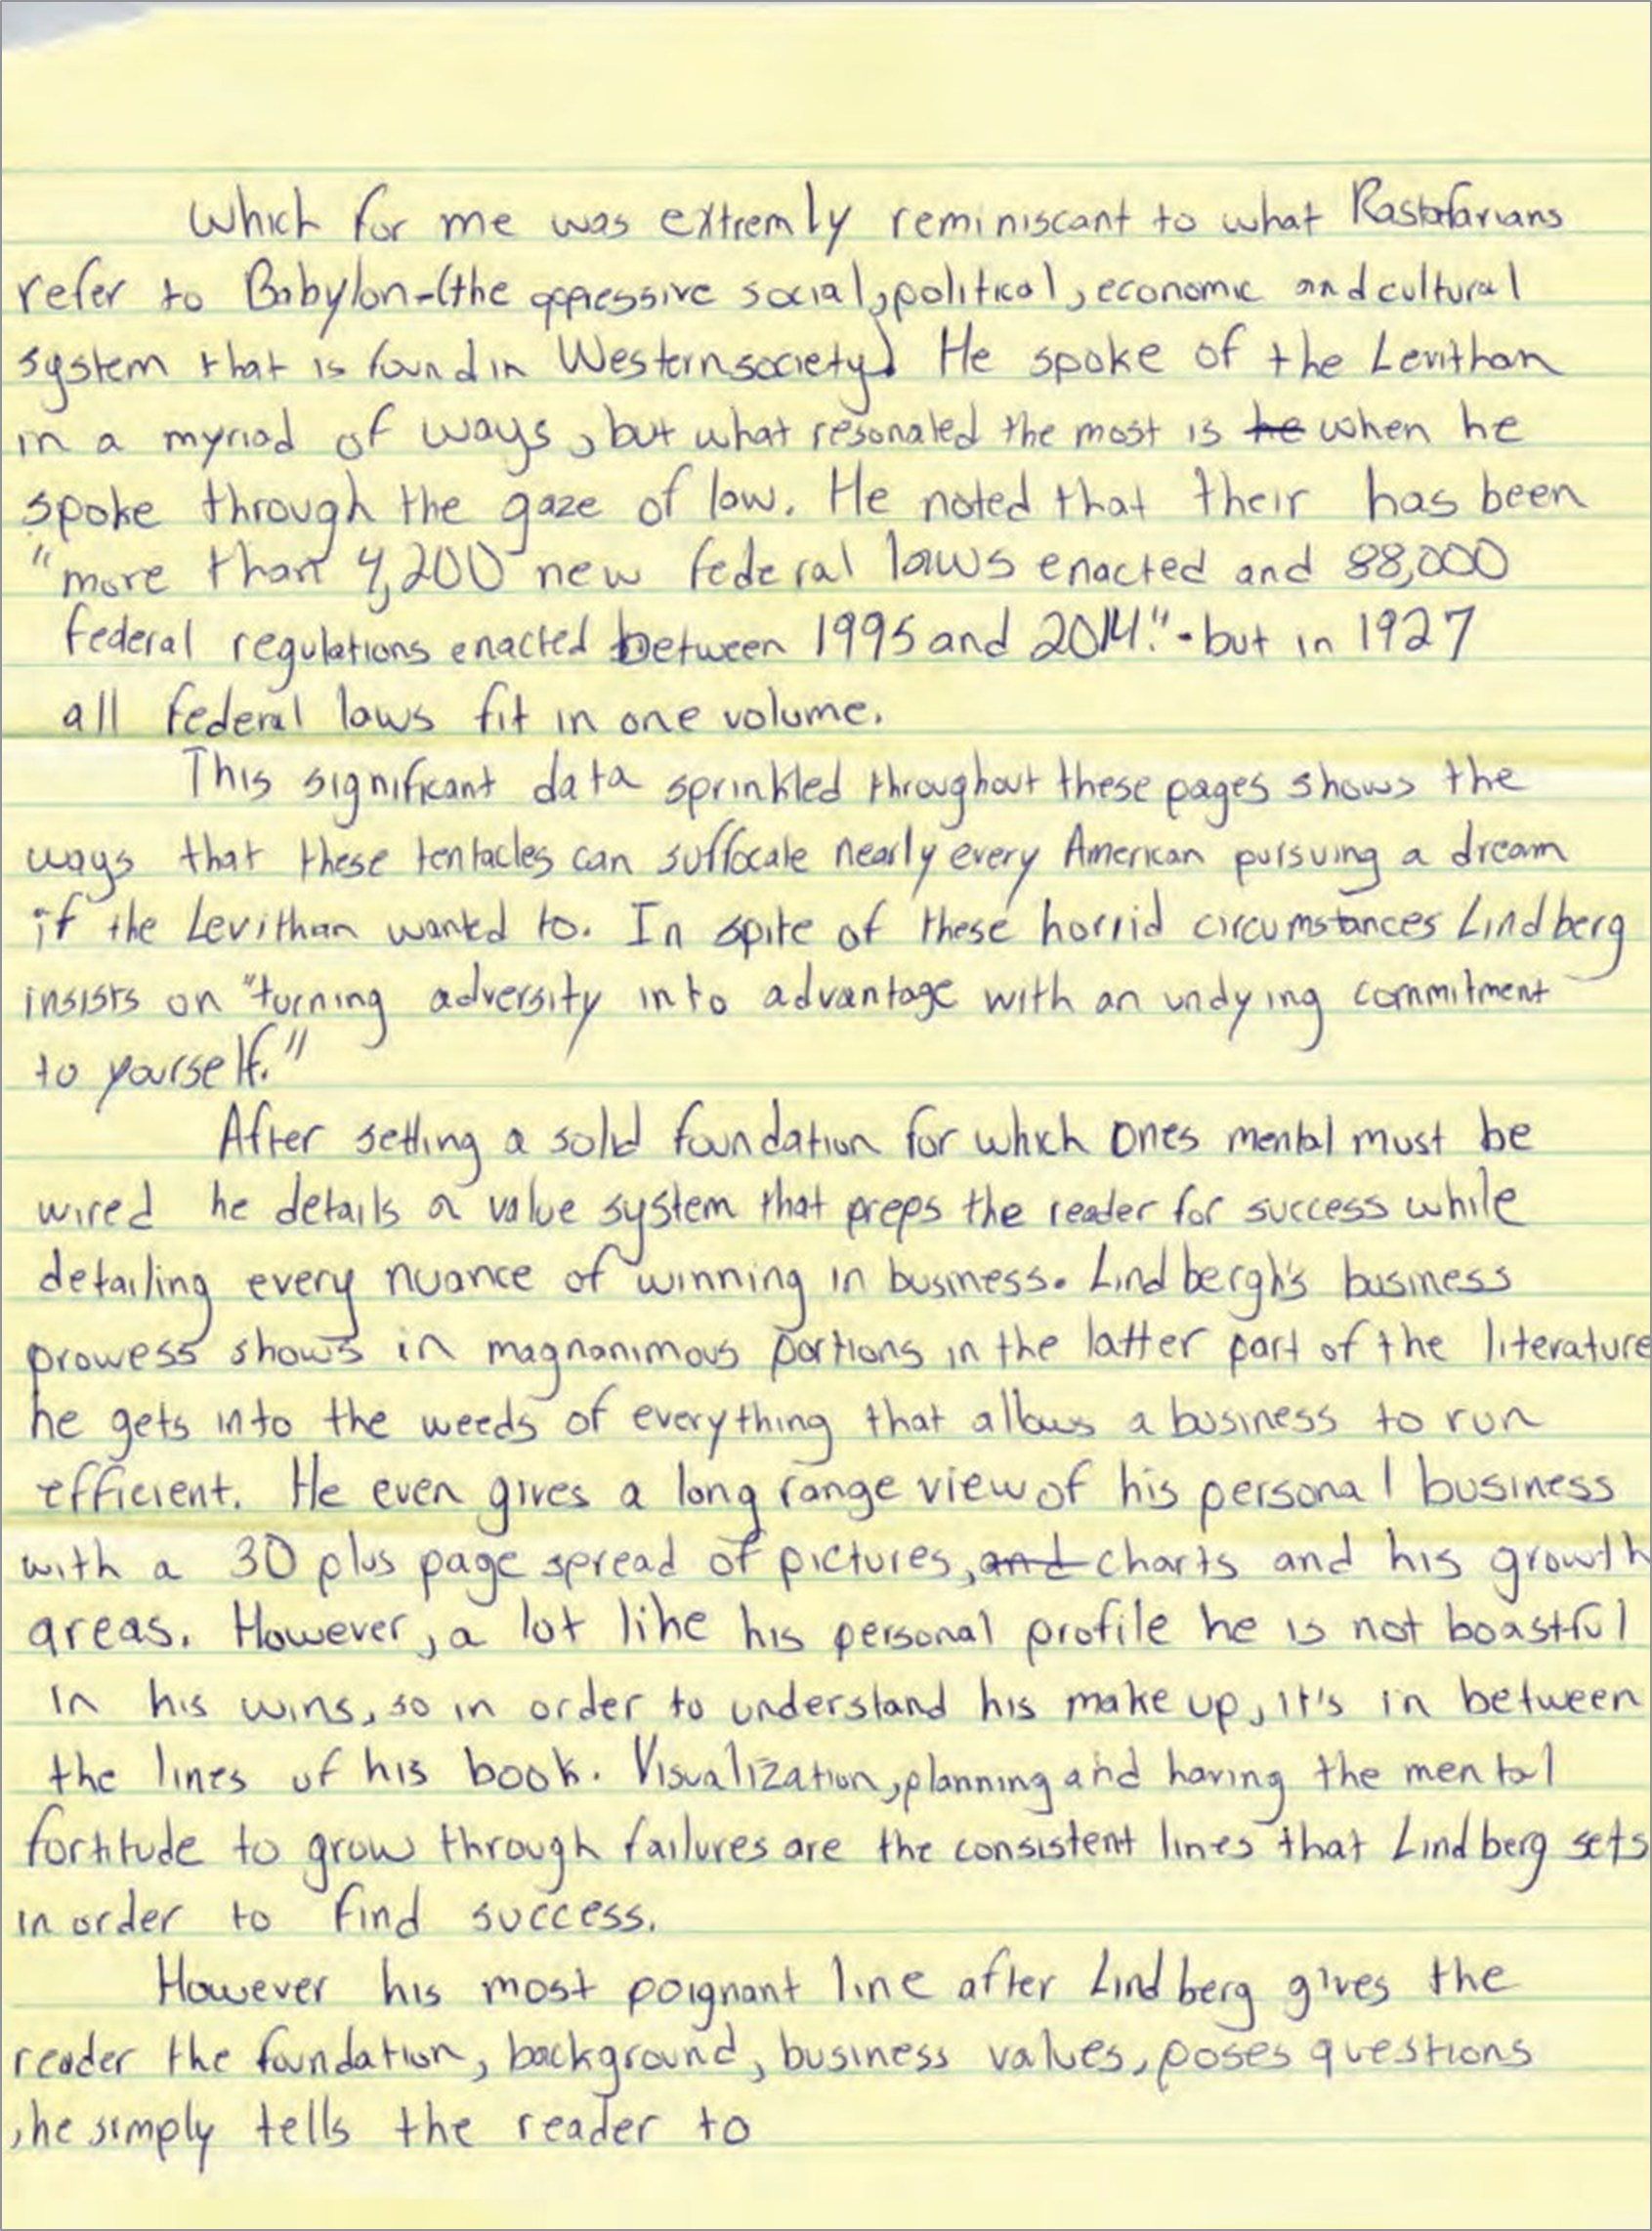 Which for me was extremly reminiscant to what Rastafarians
refer to Babylon-(the oppressive social, political, economic and cultural
system that is found in Western society) He spoke of the Levithan
in a myriad of ways, but what resonated the most is he when he
spoke through the gaze of law. He noted that their has been
"more than 4,200 new federal laws enacted and 88,000
federal regulations enacted between 1995 and 2014." - but in 1927
all federal laws fit in one volume.
This significant data sprinkled throughout these pages shows the
ways that these tentacles can suffocate nearly every American pursuing a dream
if the Levithan wanted to. In spite of these horrid circumstances Lindberg
insists on "turning adversity into advantage with an undying commitment
to yourself."
After setting a solid foundation for which ones mental must be
wired he details a value system that preps the reader for success while
detailing every nuance of winning in business. Lindbergh's business
prowess shows in magnanimous portions in the latter part of the literature
he gets into the weeds of everything that allows a business to run
efficient. He even gives a long range view of his personal business
with a 30 plus page spread of pictures, and charts and his growth
areas. However, a lot like his personal profile he is not boastful
in his wins, so in order to understand his make up, it's in between
the lines of his book. Visualization, planning and having the mental
fortitude to grow through failures are the consistent lines that Lindberg sets
in order to find success.
However his most poignant line after Lindberg gives the
reader the foundation, background, business values, poses questions
, he simply tells the reader to